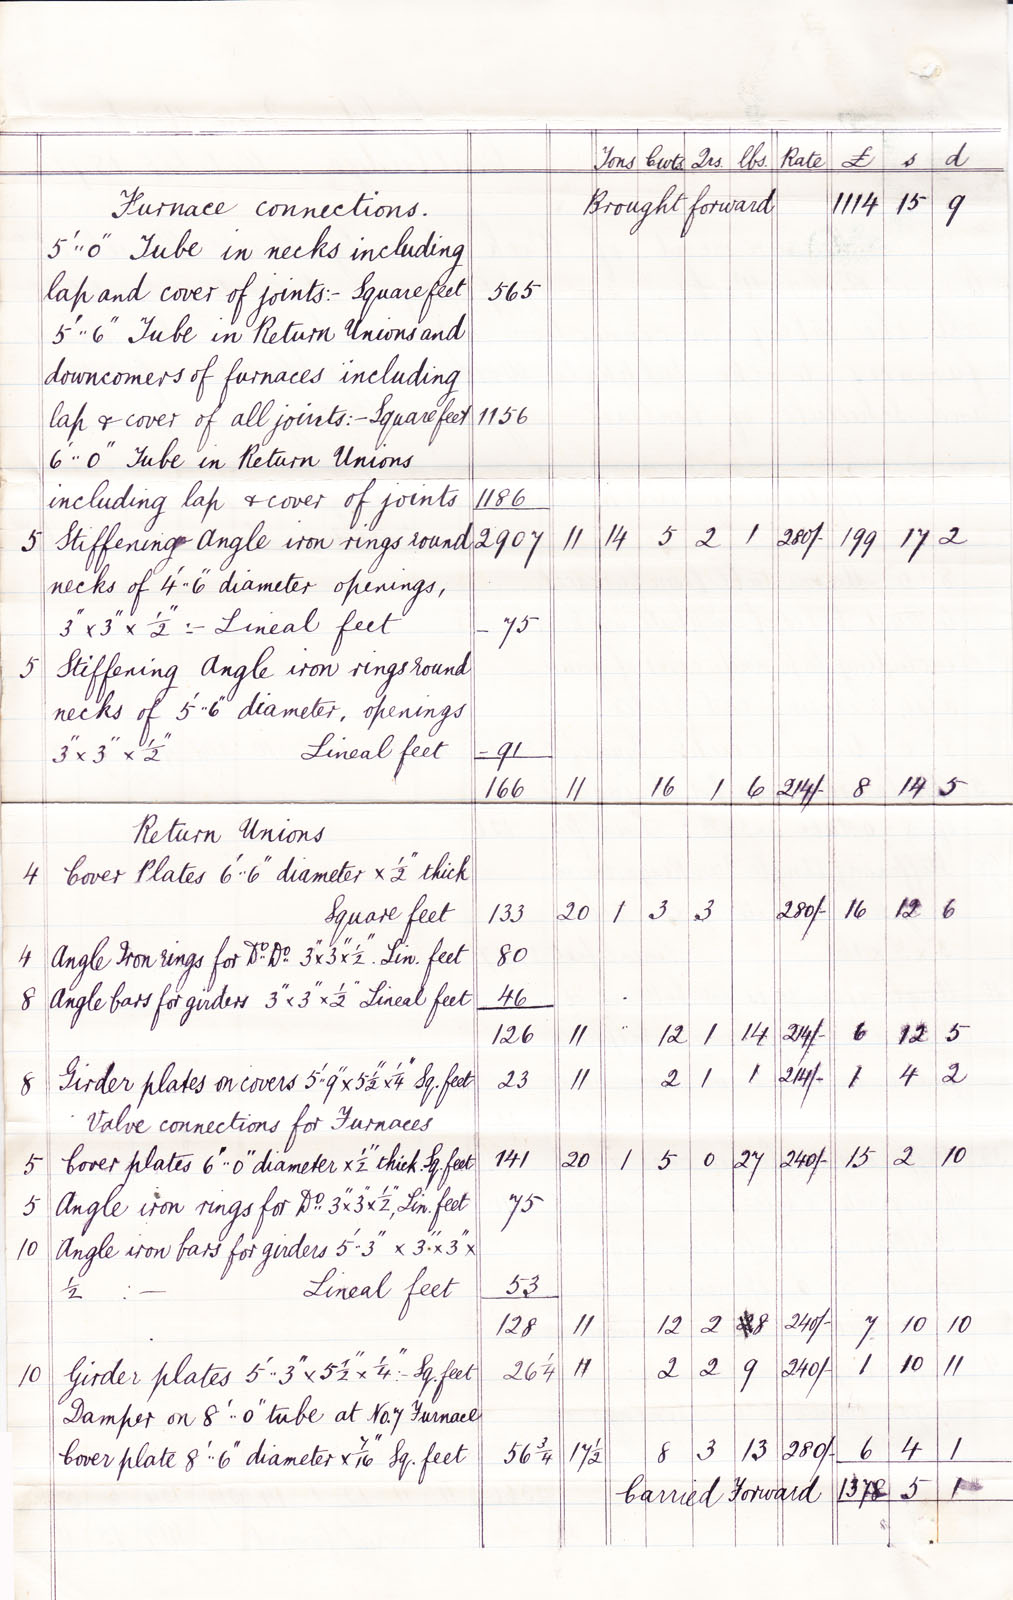 Tons Cwts Qrs. lbs. Rate £ s d
Furnace connections. Brought forward 1114 15 9
5'..0" Tube in necks including
lap and cover of joints:- Square feet 565
5'..6" Tube in Return Unions and
downcomers of furnaces including
lap & cover of all joints:- Square feet 1156
6'..0" Tube in Return Unions
including lap & cover of joints 1186
5 Stiffening Angle iron rings round 2907 11 14 5 2 1 280/- 199 17 2
necks of 4'..6" diameter openings,
3" x 3" x 1/2" :- Lineal feet - 75
5 Stiffening Angle iron rings round
necks of 5'..6" diameter, openings
3" x 3" x 1/2" Lineal feet - 91
166 11 16 1 6 214/- 8 14 5
Return Unions
4 Cover Plates 6'..6" diameter x 1/2" thick
Square feet 133 20 1 3 3 280/- 16 12 6
4 Angle Iron rings for Do. Do. 3"x3"x1/2". Lin. feet 80
8 Angle bars for girders 3"x3"x1/2" Lineal feet 46
126 11 12 1 14 214/- 6 12 5
8 Girder plates on covers 5'..9"x5 1/2"x1/4" Sq. feet 23 11 2 1 1 214/- 1 4 2
Valve connections for Furnaces
5 Cover plates 6'..0" diameter x 1/2" thick. Sq. feet 141 20 1 5 0 27 240/- 15 2 10
5 Angle iron rings for Do. 3"x3"x1/2", Lin. feet 75
10 Angle iron bars for girders 5'..3" x 3" x 3" x
1/2 :- Lineal feet 53
128 11 12 2 8 240/- 7 10 10
10 Girder plates 5'..3" x 5 1/2" x 1/4":- Sq. feet 26 1/4 11 2 2 9 240/- 1 10 11
Damper on 8'..0" tube at No. 7 Furnace
Cover plate 8'..6" diameter x 7/16" Sq. feet 56 3/4 17 1/2 8 3 13 280/- 6 4 1
Carried Forward 1378 5 1